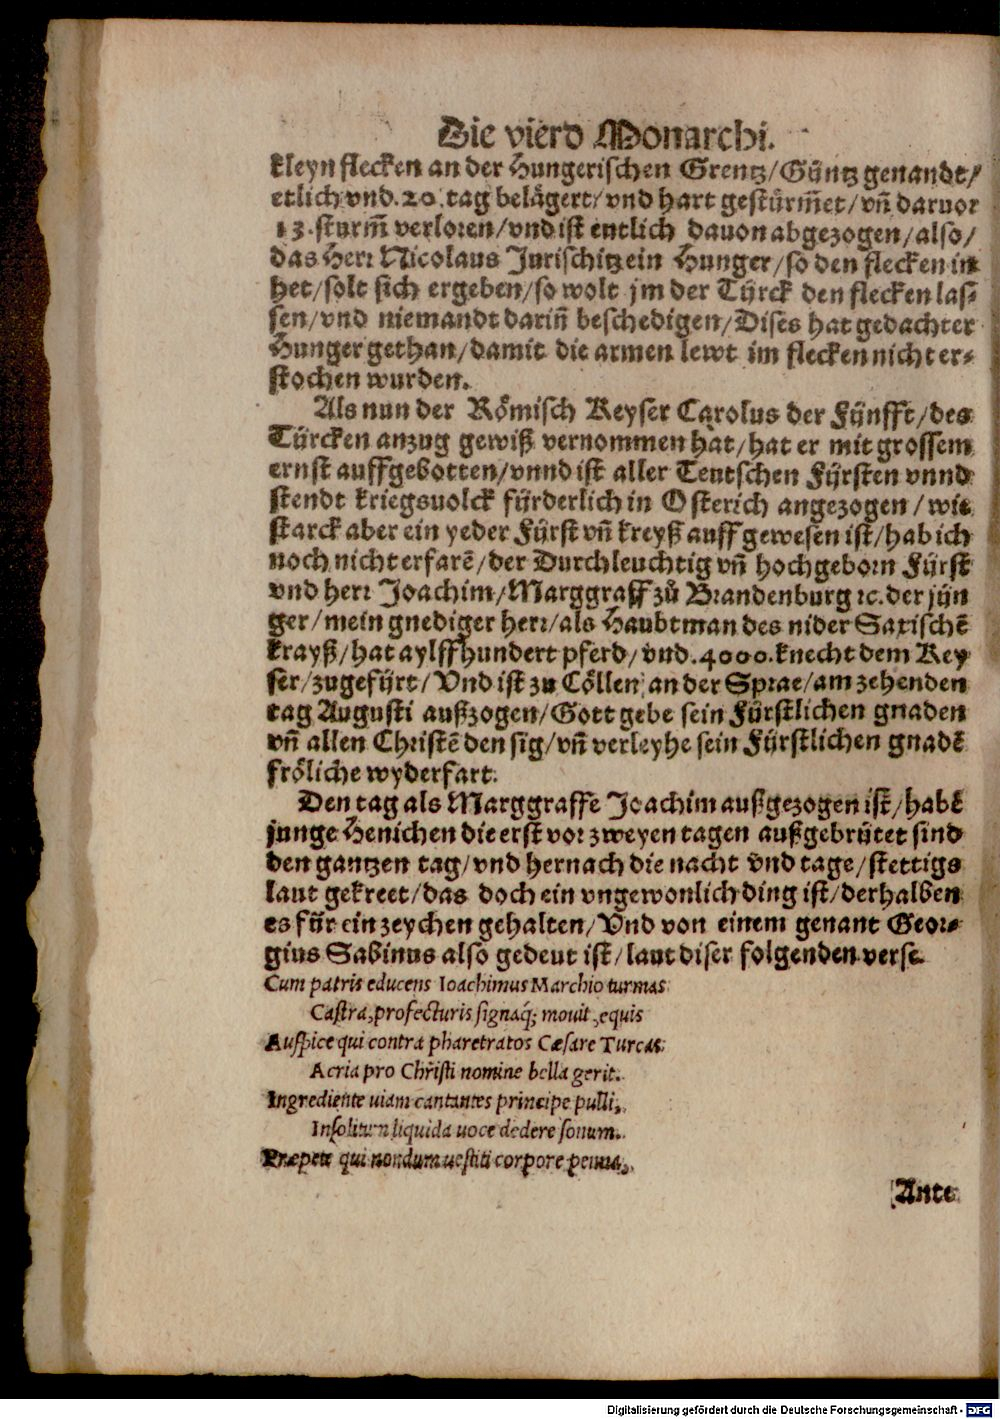 Die vierd Monarchi.
kleyn flecken an der Hungerischen Grentz/Güntz genandt/
etlich vnd.20.tag belägert/vnd hart gestürm̄et/vn̄ daruor
13.sturm̄ verloren/vnd ist entlich dauon abgezogen/also/
das Herr Nicolaus Jurischitz ein Hunger/so den flecken in
het/solt sich ergeben/so wolt jm der Tyrck den flecken las-
sen/vnd niemandt darin̄ beschedigen/Dises hat gedachter
Hunger gethan/damit die armen lewt im flecken nicht er-
stochen wurden.
Als nun der Römisch Keyser Carolus der Fünfft/des
Türcken anzug gewiß vernommen hat/hat er mit grossem
ernst auffgebotten/vnnd ist aller Teutschen Fürsten vnnd
stendt kriegsuolck fürderlich in Osterich angezogen/wie
starck aber ein yeder Fürst vn̄ kreyß auff gewesen ist/hab ich
noch nicht erfarē/der Durchleuchtig vn̄ hochgeborn Fürst
vnd herr Joachim/Marggraff zů Brandenburg ꝛc.der jün
ger/mein gnediger herr/als Haubtman des nider Saxischē
krayß/hat aylffhundert pferd/vnd.4000.knecht dem Key
ser/zugefürt/Vnd ist zu Cöllen an der Sprae/am zehenden
tag Augusti außzogen/Gott gebe sein Fürstlichen gnaden
vn̄ allen Christē den sig/vn̄ verleyhe sein Fürstlichen gnadē
fröliche wyderfart.
Den tag als Marggraffe Joachim außgezogen ist/habē
junge Henichen die erst vor zweyen tagen außgebrütet sind
den gantzen tag/vnd hernach die nacht vnd tage/stettigs
laut gekreet/das doch ein vngewonlich ding ist/derhalben
es für ein zeychen gehalten/Vnd von einem genant Geor-
gius Sabinus also gedeut ist/laut diser folgenden verse.
Cum patris educens Ioachimus Marchio turmas
Castra, profecturis signaq́; mouit, equis
Auspice qui contra pharetratos Cæsare Turcas
Acria pro Christi nomine bella gerit.
Ingrediente uiam cantantes principe pulli,
Insolitum liquida uoce dedere sonum.
Præpete qui nondum uestiti corpore penna,
Ante
Digitalisierung gefördert durch die Deutsche Forschungsgemeinschaft - DFG